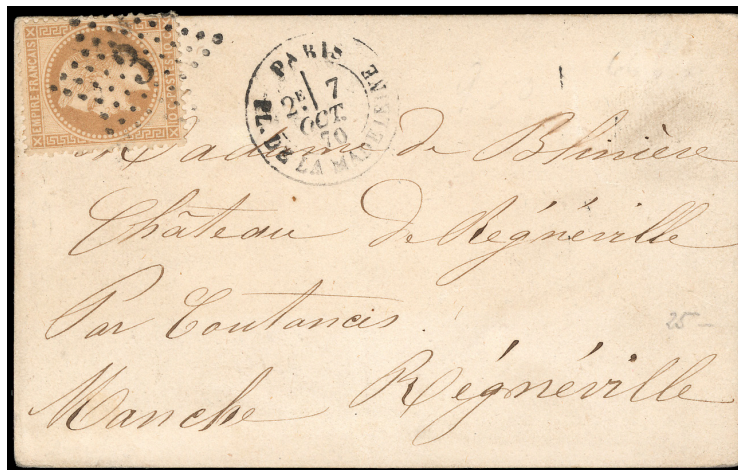 EMPIRE FRANÇAIS
3
PARIS
2E 7
OCT.
70
PL. DE LA MADELEINE
Madame de Blinière
Château de Régnéville
Par Coutances
25 —
Manche Régnéville